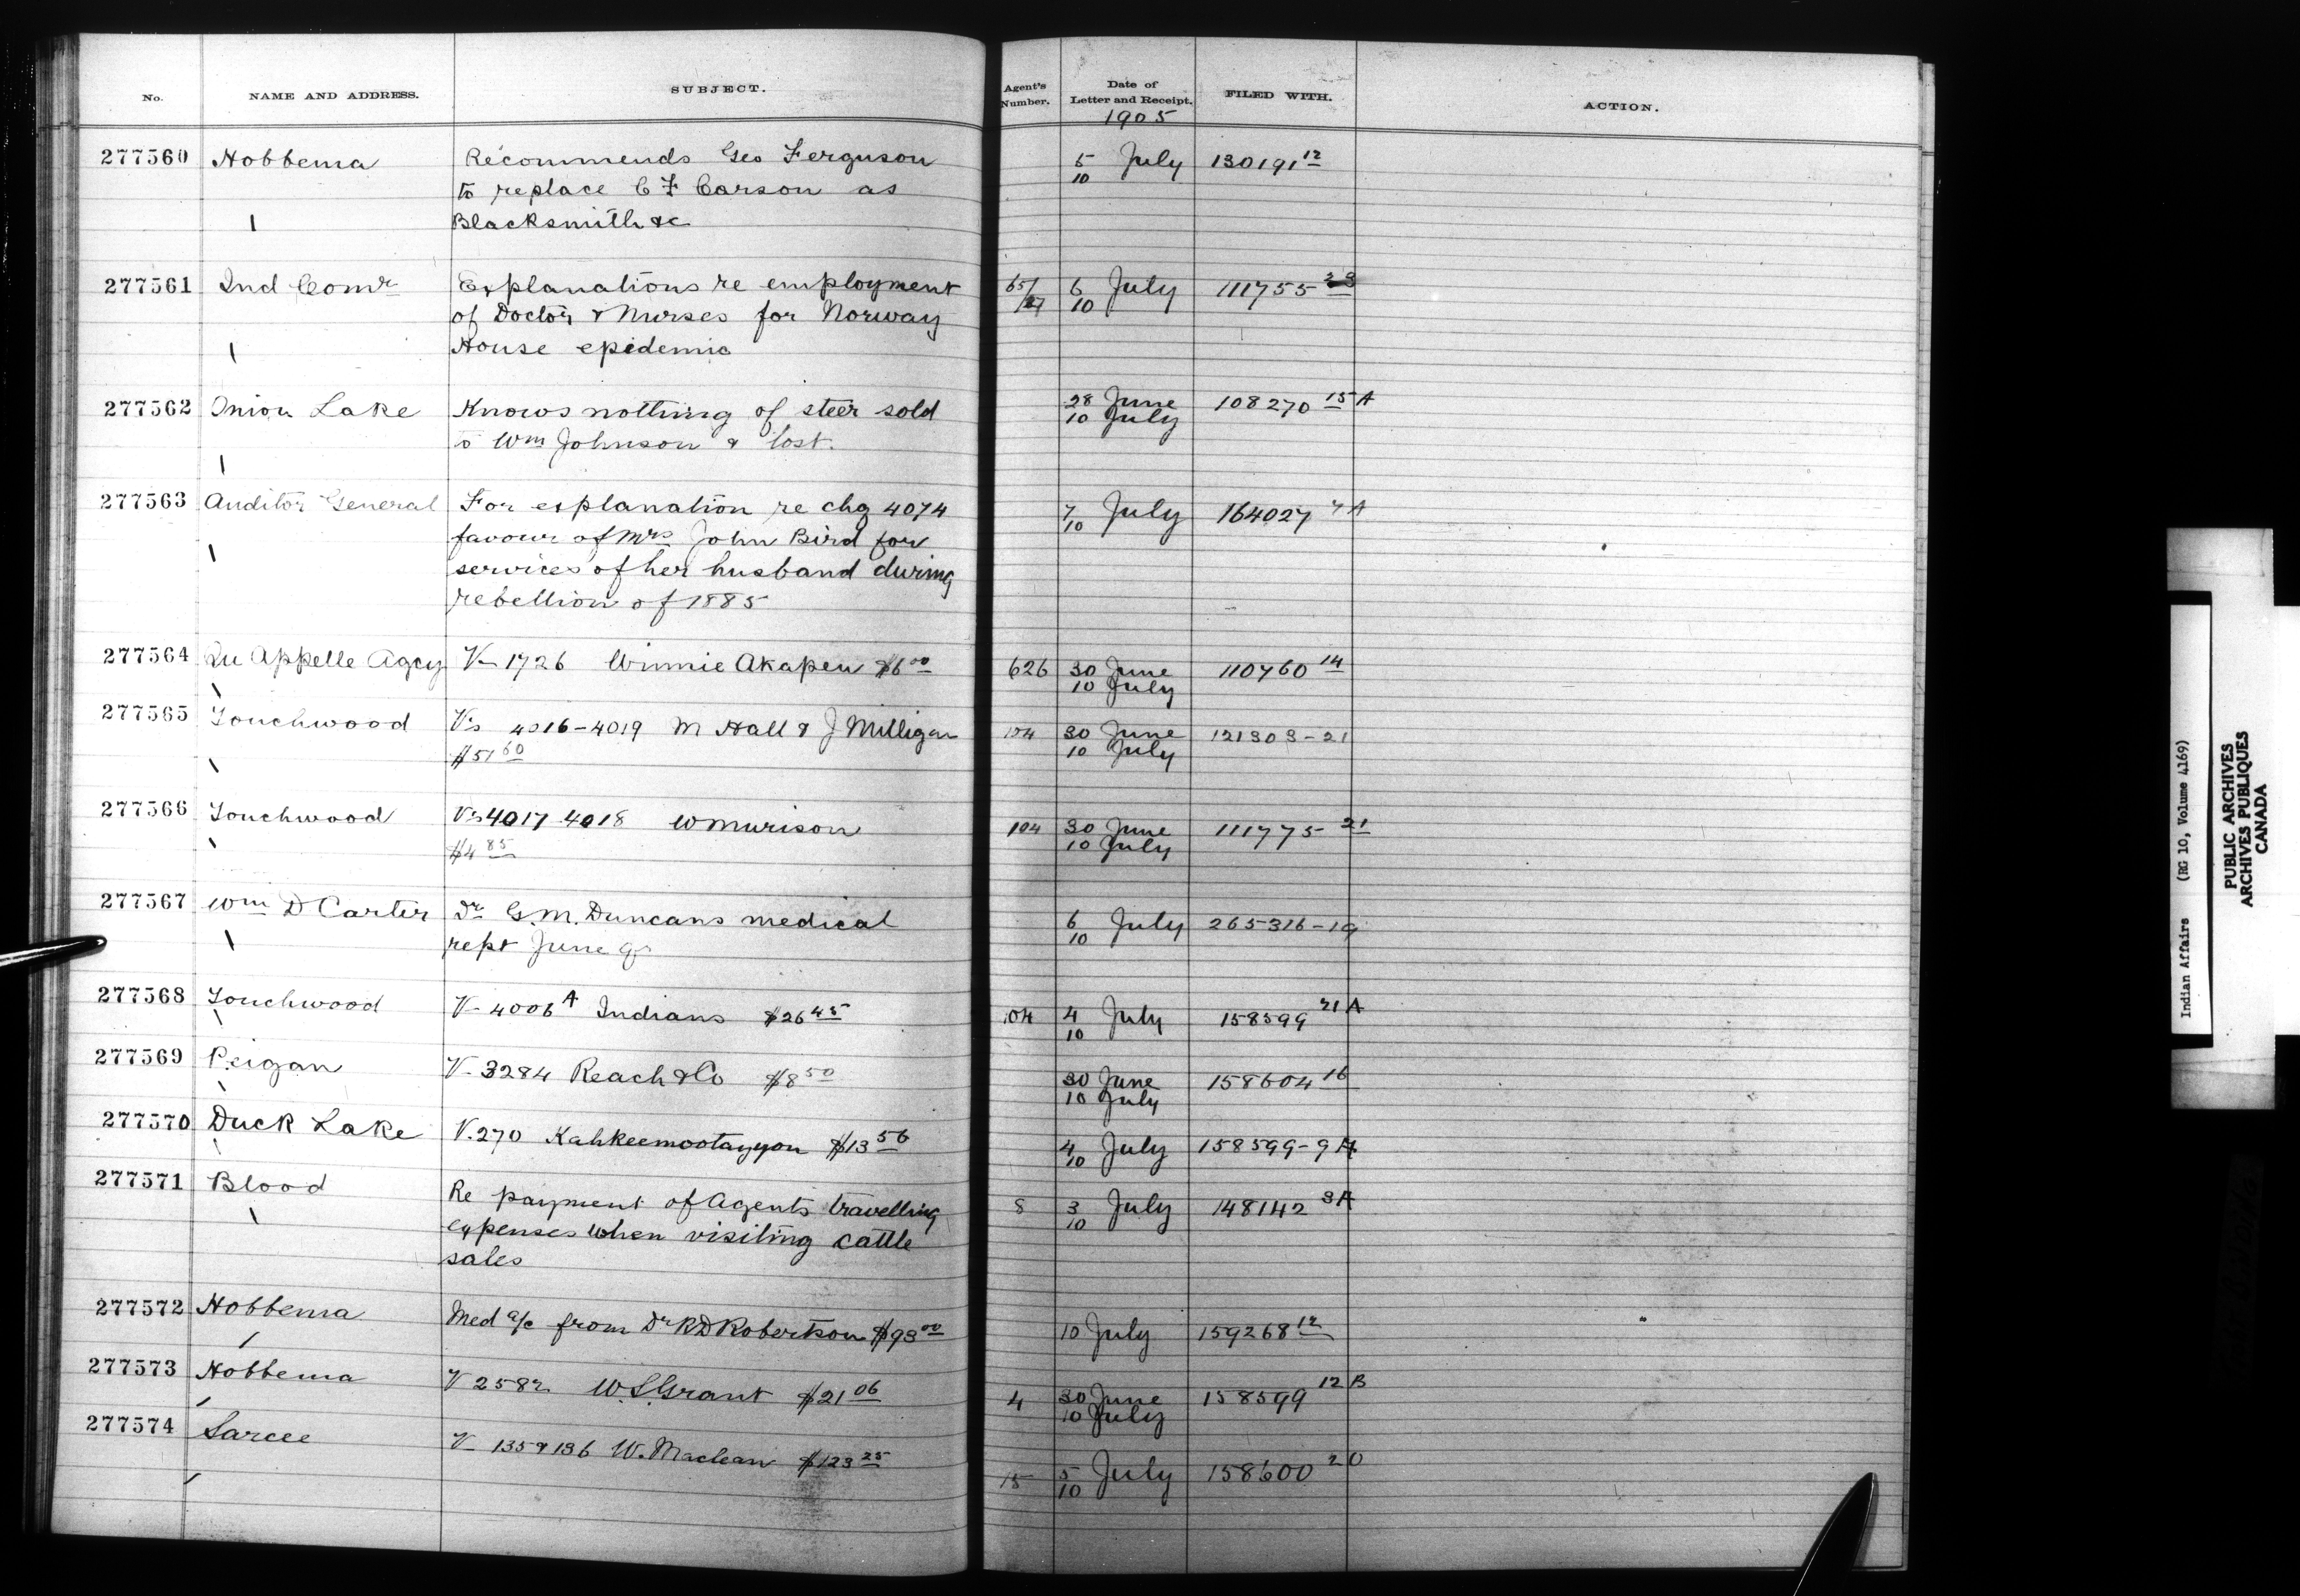 No. NAME AND ADDRESS. SUBJECT. Agent's Number. Date of Letter and Receipt. FILED WITH. ACTION.
1905
277560 Hobbema Recommends Geo Ferguson 5 July 130191 12
to replace C F Carson as 10
Blacksmith &c
277561 Ind Comr Explanations re employment 6 July 111755 23
of Doctor & Nurses for Norway 10
House epidemic
277562 Onion Lake Knows nothing of steer sold 28 June 108270 15A
to Wm Johnson & lost. 10 July
277563 Auditor General For explanation re chq 4074 7 July 164027
favour of Mrs John Bird for 10
services of her husband during
rebellion of 1885
277564 Qu Appelle Agcy V- 1726 Winnie Akapew $6 00 626 30 June 110760 14
10 July
277565 Touchwood Vs 4016-4019 M Hall & J Milligan 104 30 June 121303-21
$51 60 10 July
277566 Touchwood Vs 4017-4018 W Murison 104 30 June 111775-21
$4 85 10 July
277567 Wm D Carter Dr G.M. Duncans medical 6 July 265316-19
rept June qr 10
277568 Touchwood V- 4006 A Indians $26 45 104 4 July 158599 21A
10
277569 Peigan V- 3284 Reach & Co $8 50 30 June 158604 16
10 July
277570 Duck Lake V. 270 Kahkeemootayyon $13 56 4 July 158599-9A
10
277571 Blood Re payment of Agents travelling 8 3 July 148142 3A
expenses when visiting cattle 10
sales
277572 Hobbema Med a/c from Dr R D Robertson $93 00 10 July 159268 12
277573 Hobbema V 2582 W.S. Grant $21 06 4 30 June 158599 12B
10 July
277574 Sarcee V- 135 & 136 W. Maclean $123 25 15 5 July 158600 20
10
Indian Affairs (RG 10, Volume 4169)
PUBLIC ARCHIVES
ARCHIVES PUBLIQUES
CANADA